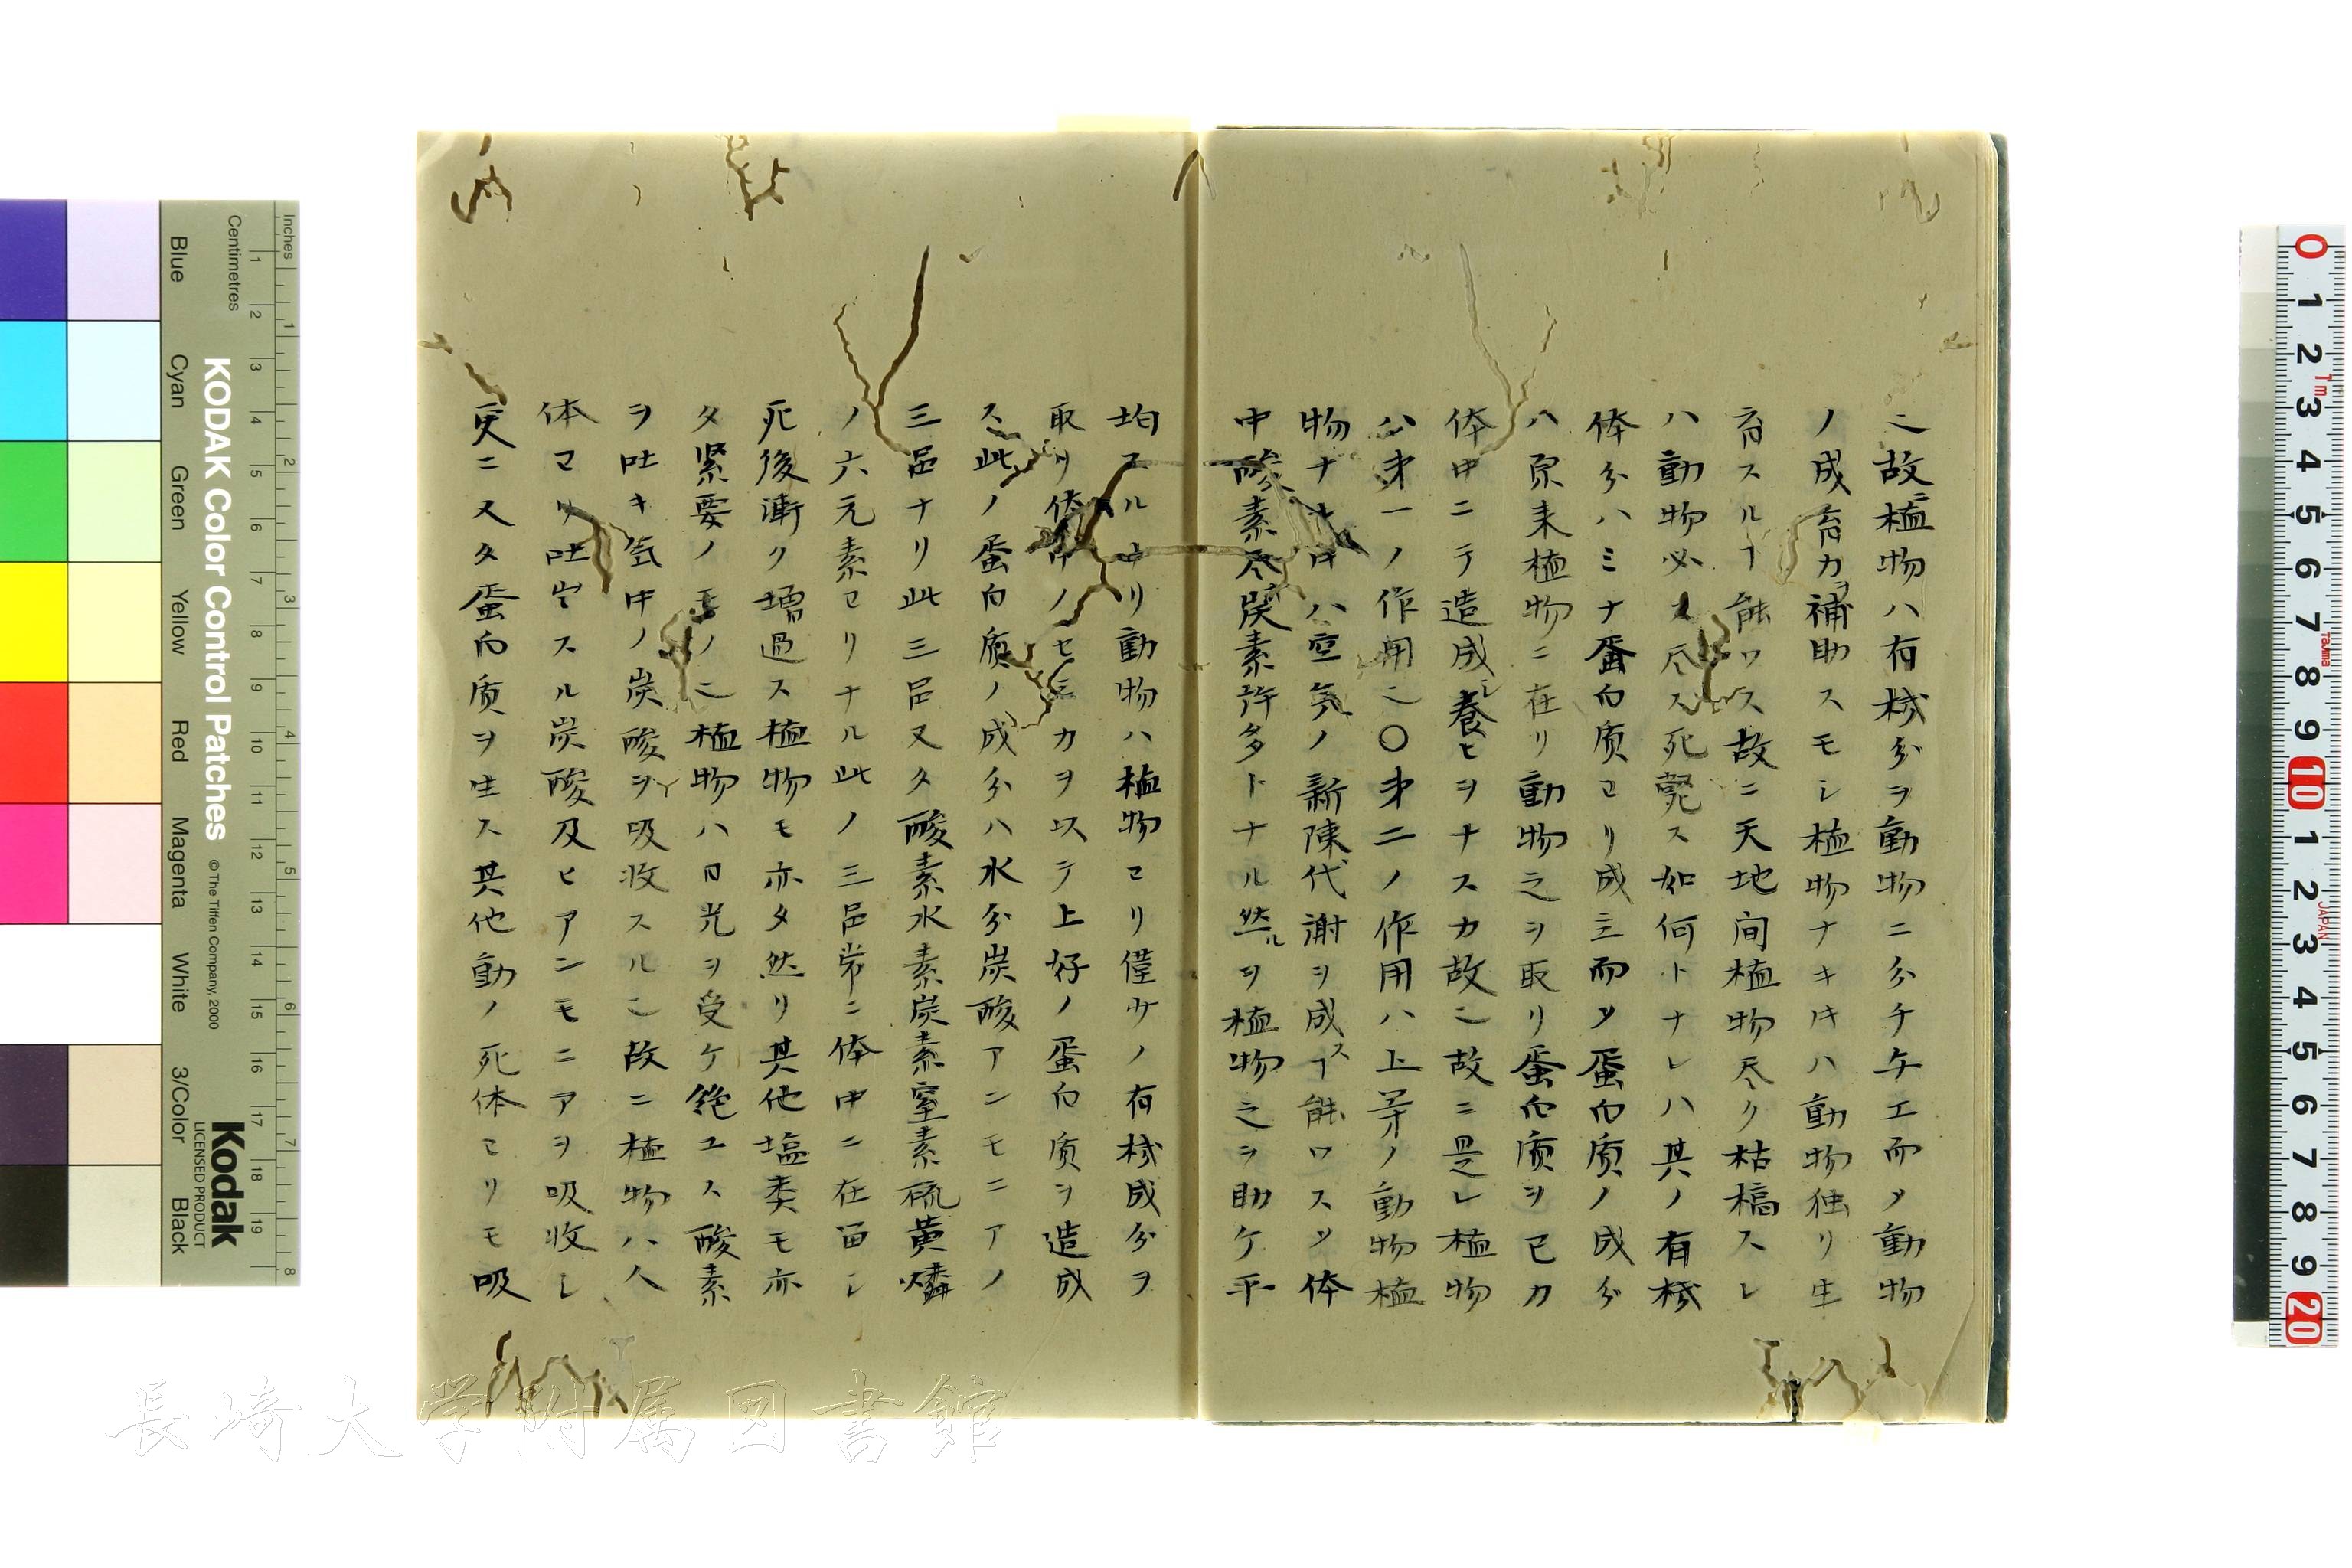 ニ故ニ植物ハ有機分ヲ動物ニ分チ与エ而メ動物
ノ成育力ヲ補助スモシ植物ナキ片ハ動物独リ生
育スルヿ能ワス故ニ天地间植物尽ク枯槁スレ
ハ動物必ス尽ス死斃ス如何トナレハ其ノ有機
体分ハミナ蛋白质ヨリ成立而メ蛋白质ノ成分
ハ原来植物ニ在リ動物之ヲ取リ蛋白质ヲ己カ
体中ニテ造成シ養ヒヲナスカ故ニ故ニ是レ植物
ハ第一ノ作用ニ〇第二ノ作用ハ上等ノ動物植
物ナキ片ハ空気ノ新陳代謝ヲ成スヿ能ワスメ体
中酸素尽炭素許多トナル然ルヲ植物之ヲ助ケ平
均スルナリ動物ハ植物ヨリ僅少ノ有機成分ヲ
取リ体中ノセミカヲ以テ上好ノ蛋白质ヲ造成
ス此ノ蛋白质ノ成分ハ水分炭酸アンモニアノ
三品ナリ此三品又タ酸素水素炭素窒素硫黄燐
ノ六元素ヨリナル此ノ三品常ニ体中ニ在畄シ
死後漸ク増過ス植物モ亦タ然リ其他塩类モ亦
タ緊要ノモノニ植物ハ日光ヲ受ケ絶エス酸素
ヲ吐キ気中ノ炭酸ヲ吸收スルニ故ニ植物ハ人
体ヨリ吐出スル炭酸及ヒアンモニアヲ吸收シ
更ニ又タ蛋白质ヲ生ス其他動ノ死体ヨリモ吸
Inches
Centimetres
KODAK Color Control Patches
© The Tiffen Company, 2000
Kodak
LICENSED PRODUCT
Blue
Cyan
Green
Yellow
Red
Magenta
White
3/Color
Black
長崎大学附属図書館